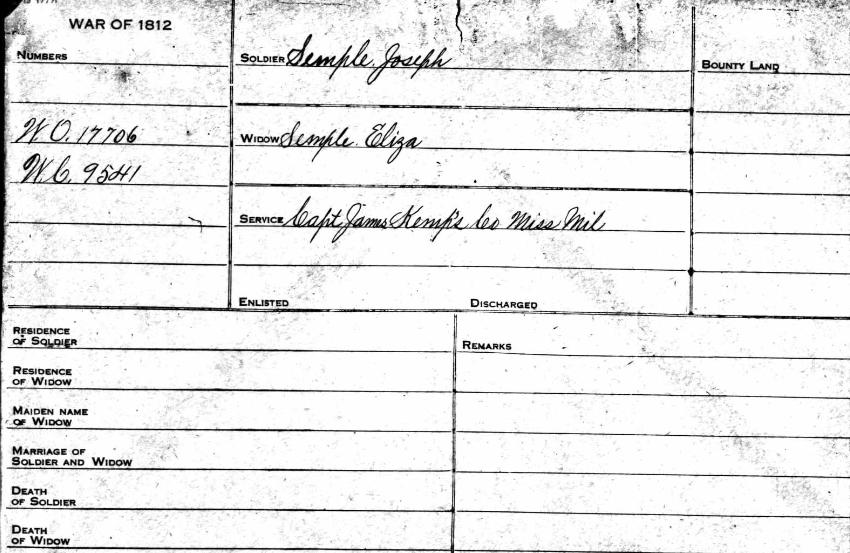 WAR OF 1812
NUMBERS
W O. 17706
W C. 9541
SOLDIER Semple, Joseph
WIDOW Semple, Eliza
SERVICE Capt James Kemp's Co Miss Mil
ENLISTED DISCHARGED
BOUNTY LAND
RESIDENCE
OF SOLDIER
RESIDENCE
OF WIDOW
MAIDEN NAME
OF WIDOW
MARRIAGE OF
SOLDIER AND WIDOW
DEATH
OF SOLDIER
DEATH
OF WIDOW
REMARKS